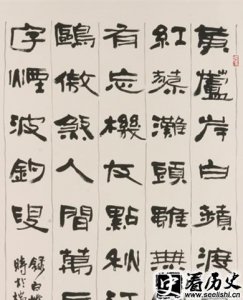 黃蘆岸白蘋渡
紅蓼灘頭雖無
有忘機友點秋江
鷗傲煞人間萬
字煙波釣叟
錄白樸
時於
看历史
www.seelishi.cn